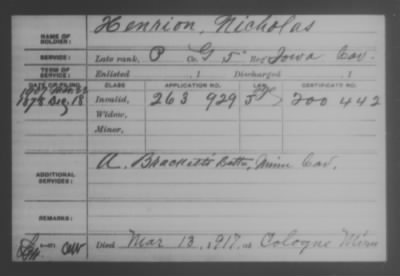 Henrion, Nicholas
NAME OF SOLDIER:
SERVICE: Late rank, P Co. G, 5" Reg Iowa Cav.
TERM OF SERVICE: Enlisted , 1 Discharged , 1
DATE OF FILING. CLASS. APPLICATION NO. LAW. CERTIFICATE NO.
1878 Aug. 18 Invalid, 263 929 200 442
Widow,
Minor,
ADDITIONAL SERVICES: A. Brackett's Batt., Minn Cav.
REMARKS:
Died Mar 13, 1917, at Cologne Minn